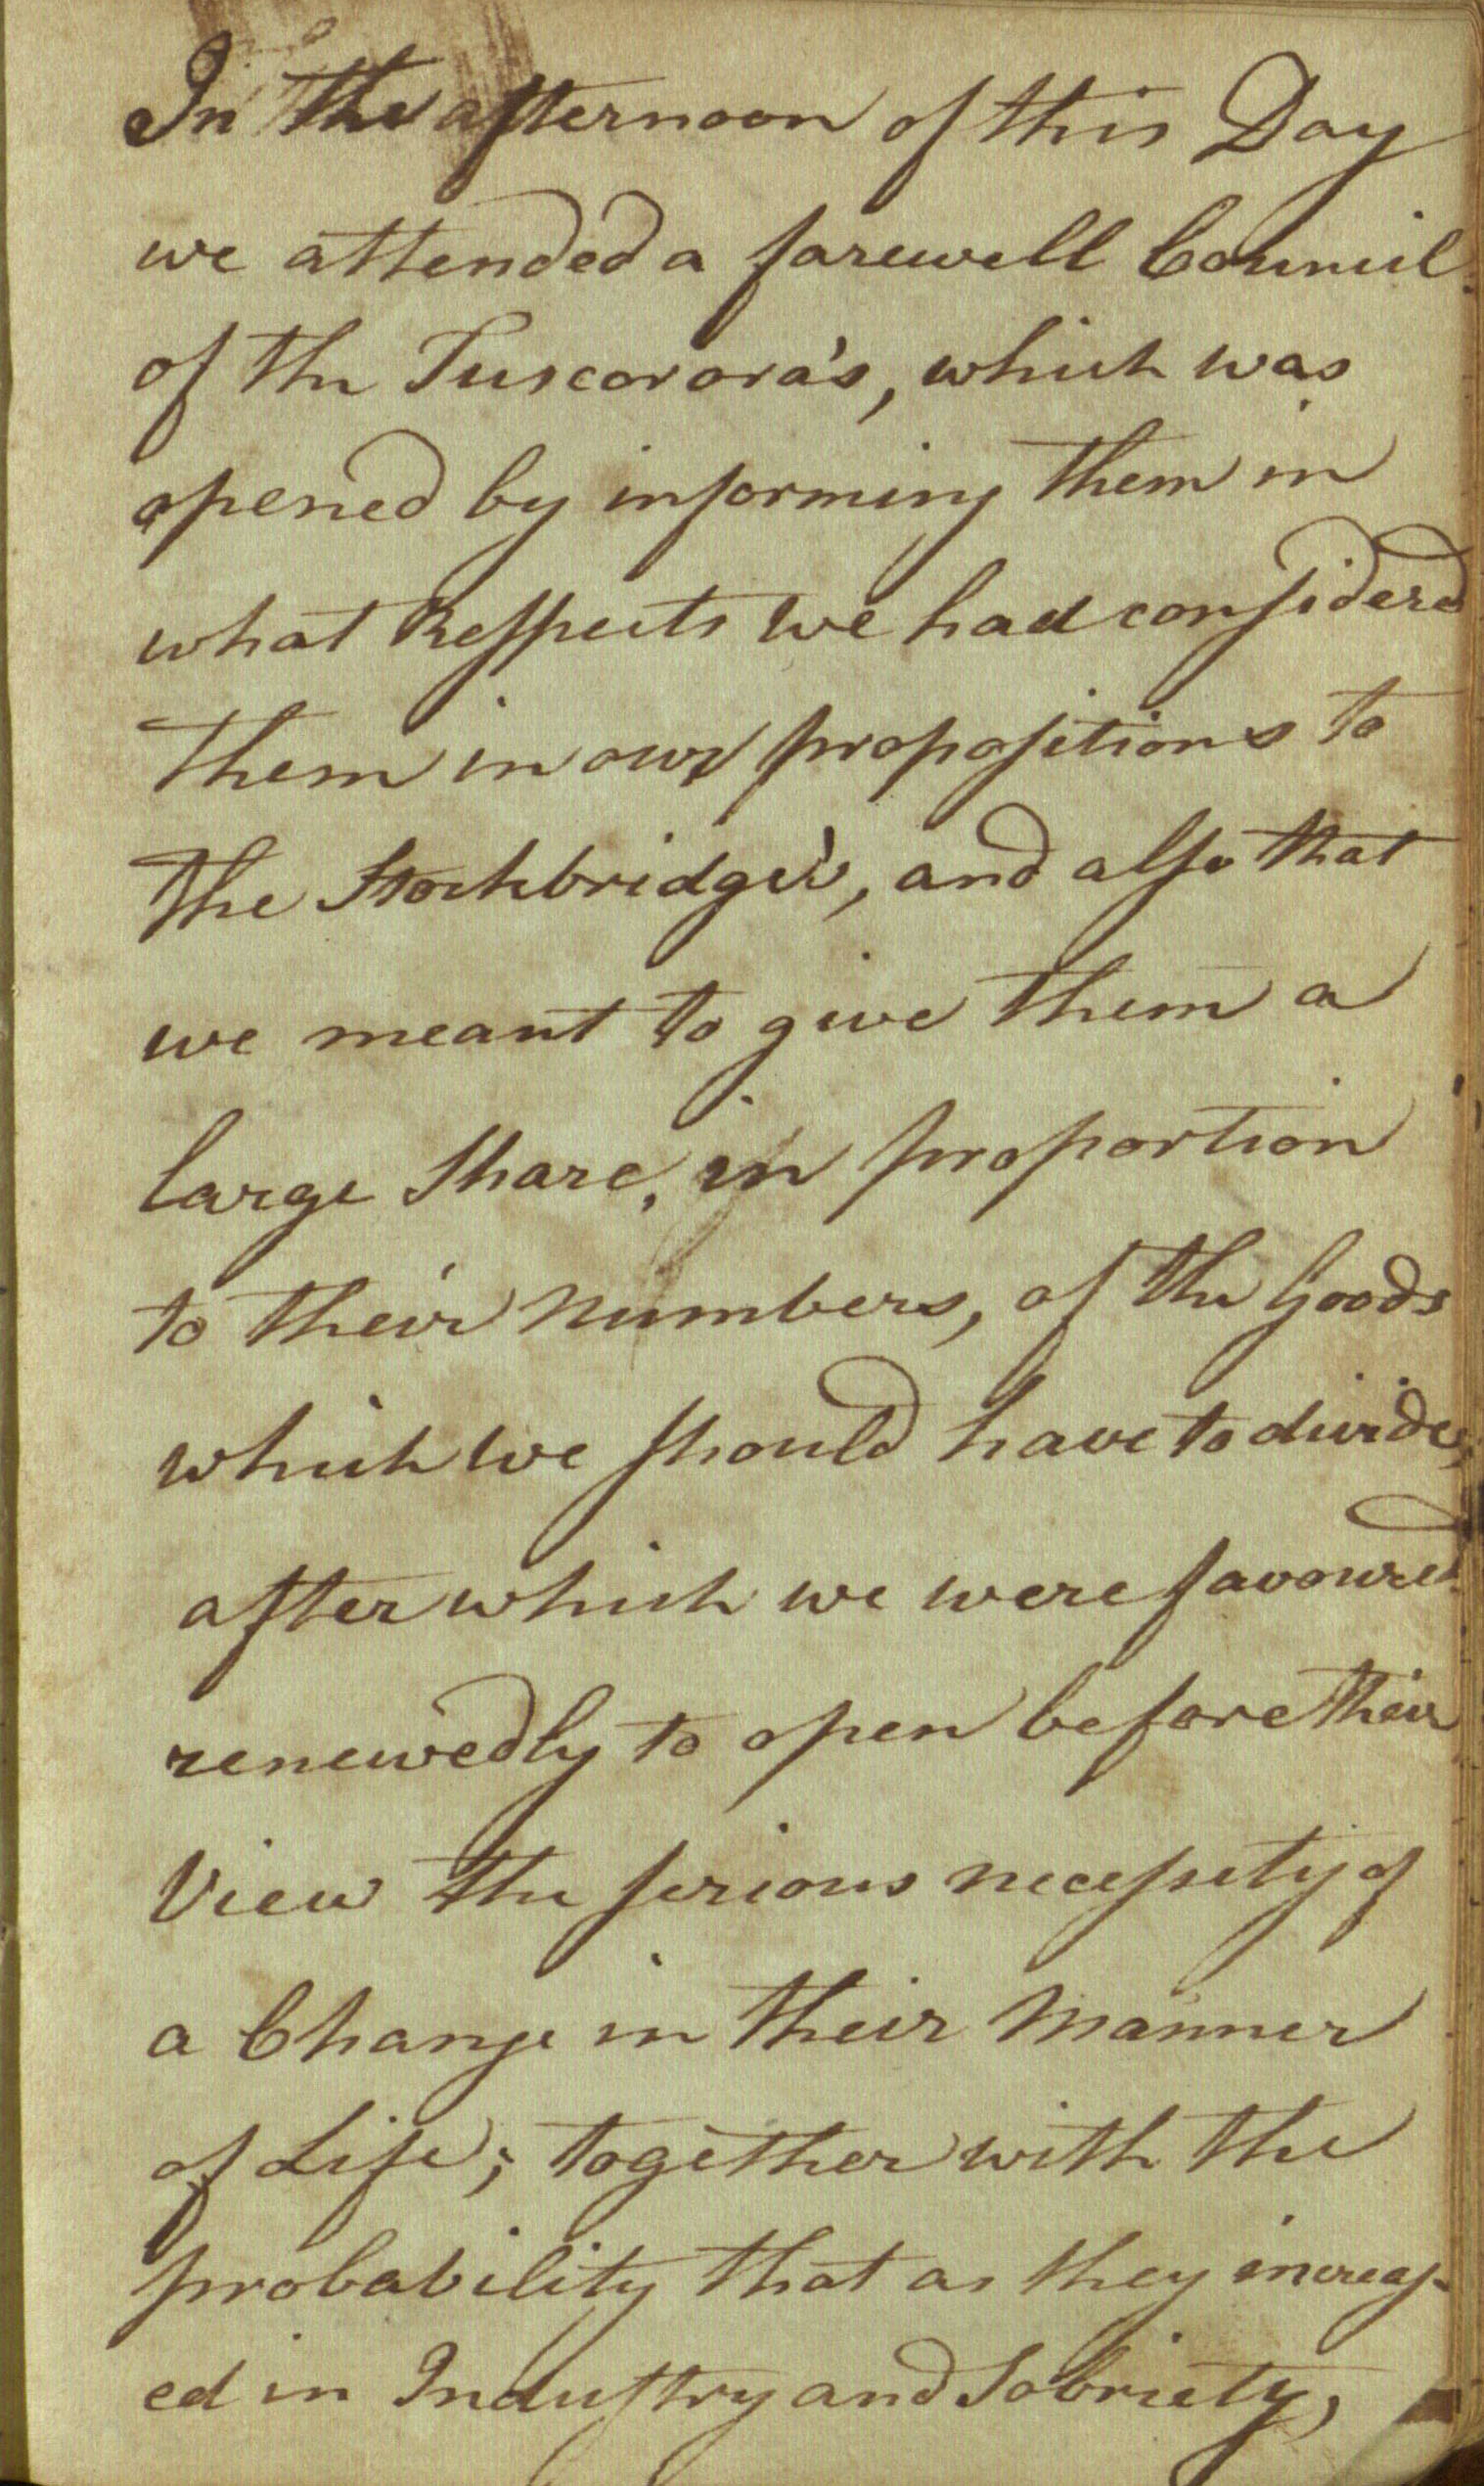 In the afternoon of this Day
we attended a farewell Council
of the Tuscorora's, which was
opened by informing them in
what Respects we had considered
them in our propositions to
the Stockbridge's, and also that
we meant to give them a
large Share, in proportion
to their numbers, of the Goods
which we should have to divide,
after which we were favoured
renewedly to open before their
View the serious necessity of
a Change in their Manner
of Life; together with the
probability that as they increas-
ed in Industry and Sobriety,